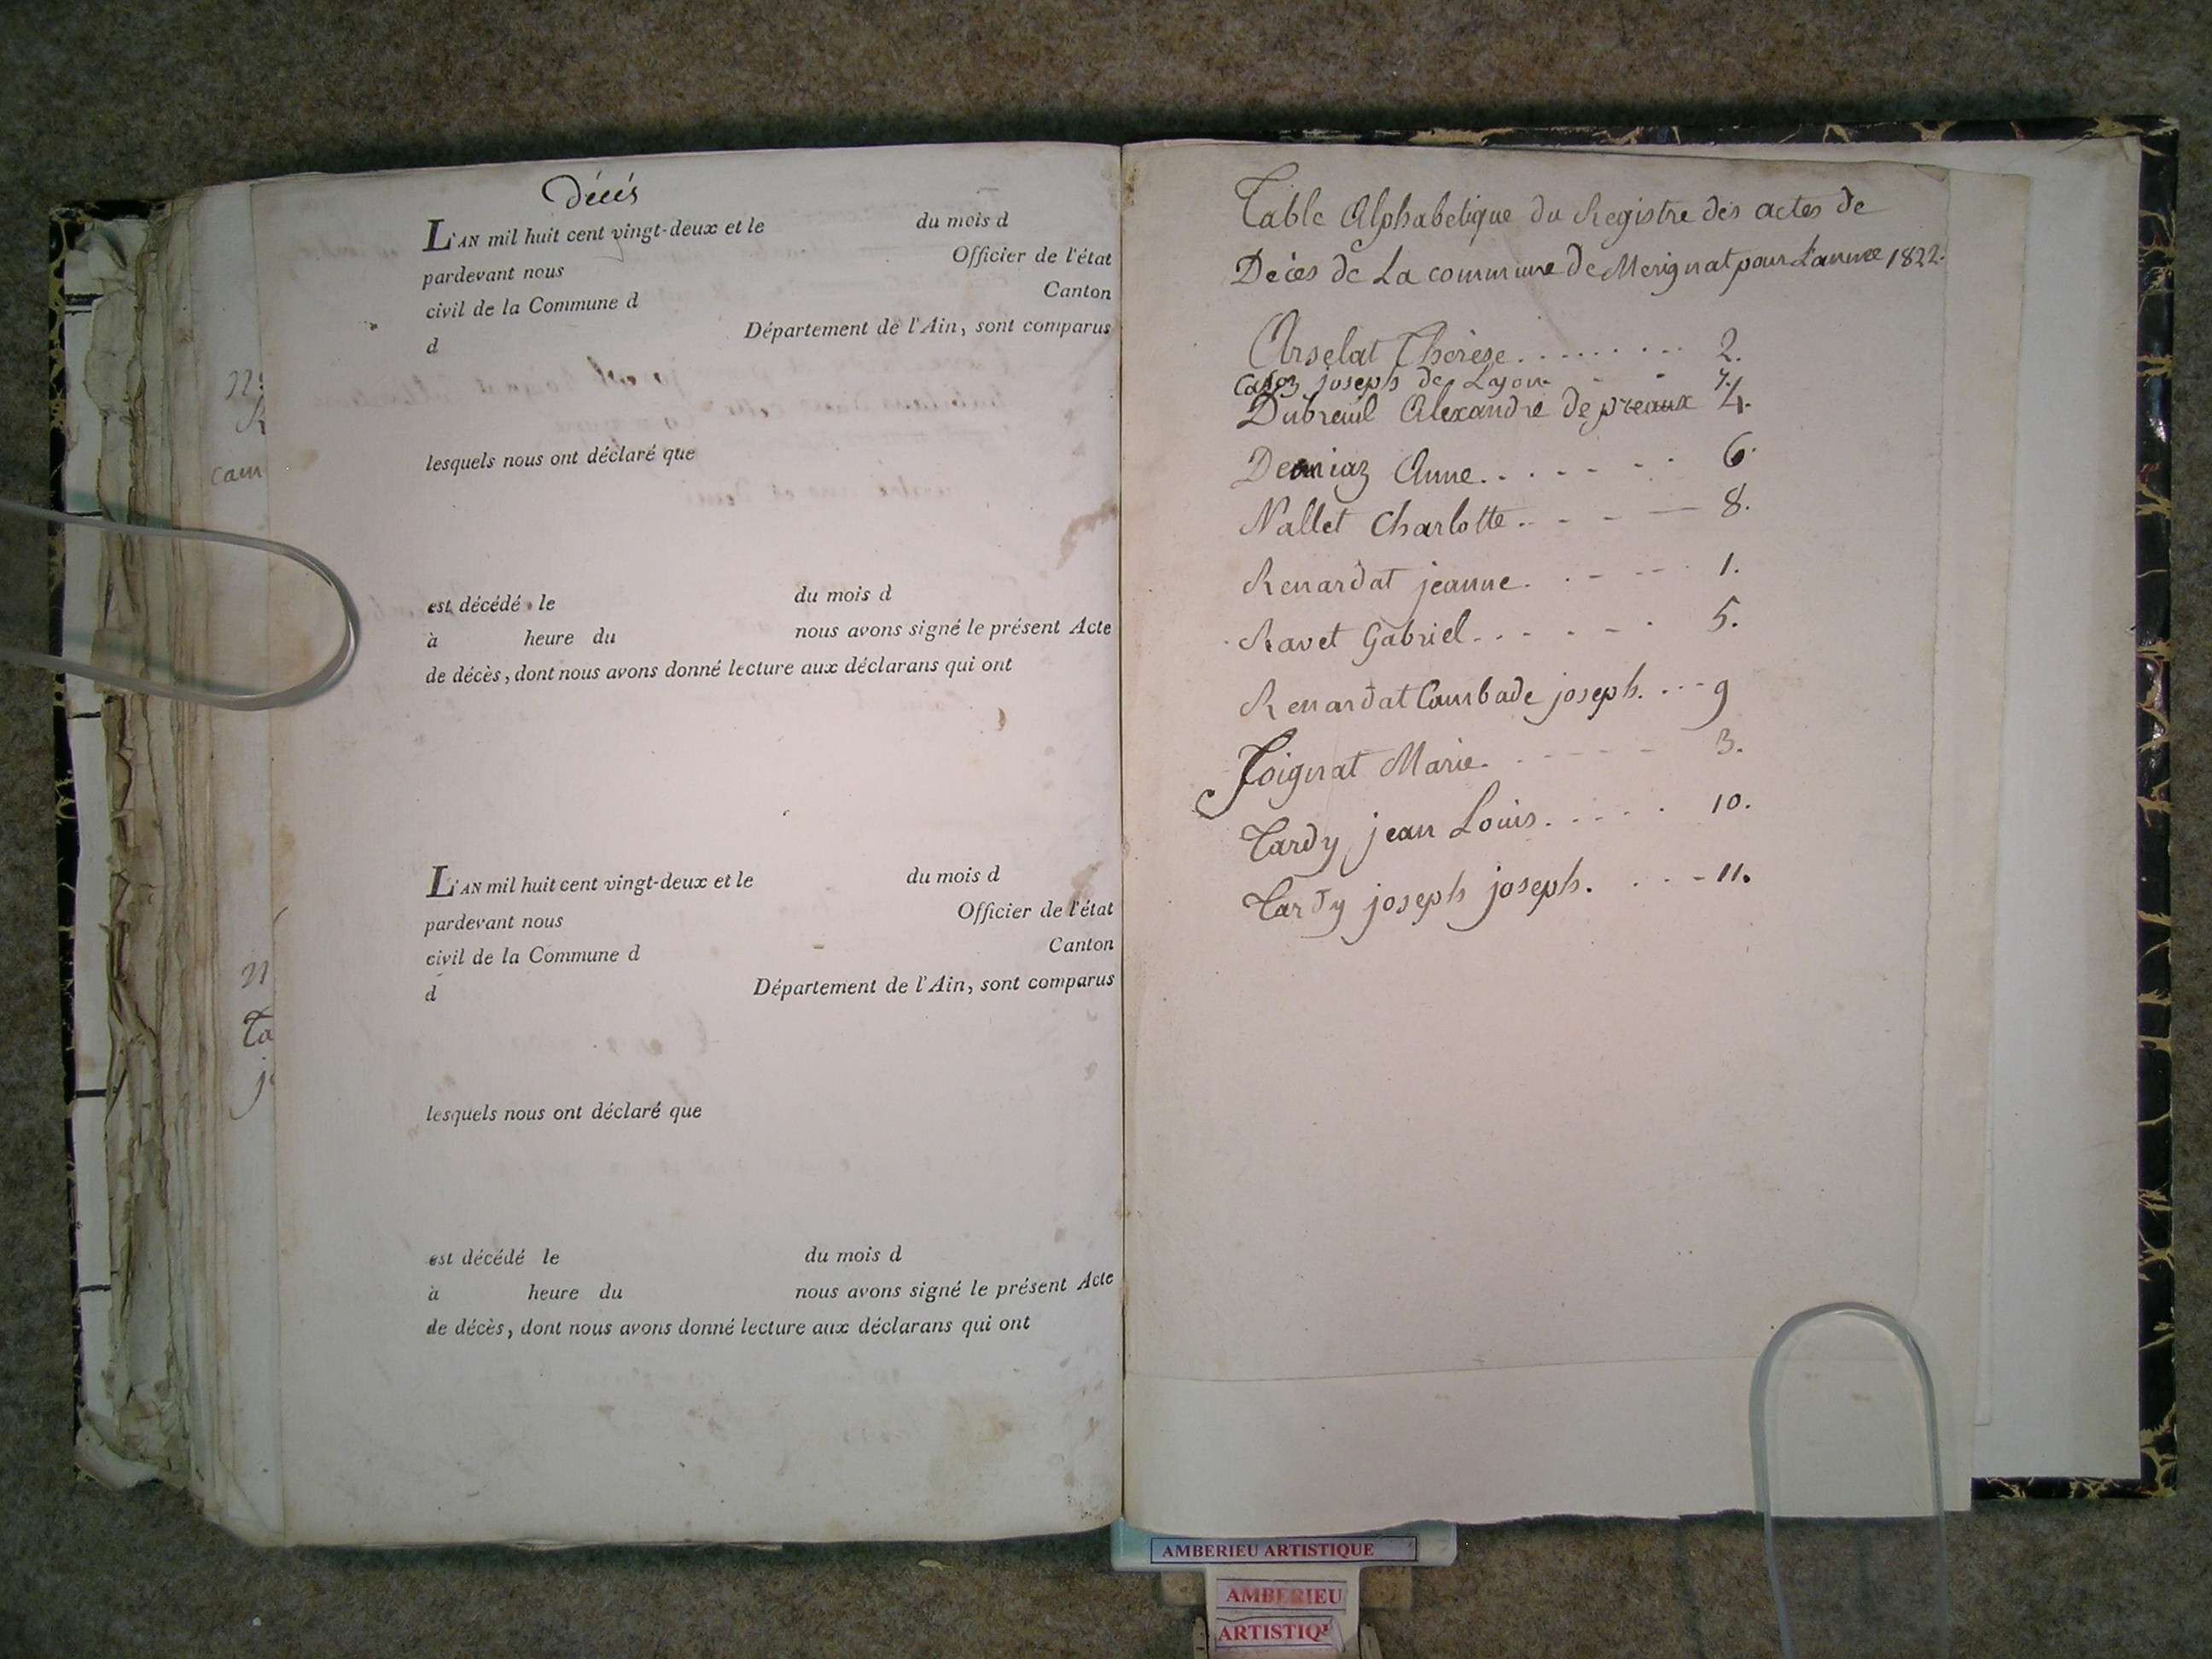 Décés
L'AN mil huit cent vingt-deux et le du mois d
pardevant nous Officier de l'état
civil de la Commune d Canton
d Département de l'Ain, sont comparus
lesquels nous ont déclaré que
est décédé le du mois d
à heure du nous avons signé le présent Acte
de décès, dont nous avons donné lecture aux déclarans qui ont
L'AN mil huit cent vingt-deux et le du mois d
pardevant nous Officier de l'état
civil de la Commune d Canton
d Département de l'Ain, sont comparus
lesquels nous ont déclaré que
est décédé le du mois d
à heure du nous avons signé le présent Acte
de décès, dont nous avons donné lecture aux déclarans qui ont
cam
Ta
Table Alphabetique du Registre des actes de
Décès de La commune de Merignat pour L'année 1822.
Arselat Thérèse......... 2.
joseph de Lyon - - 7.
Dubreuil Alexandre de preaux 4.
Anne....... 6.
Nallet Charlotte.. - - — 8.
Renardat jeanne. . - -- 1.
Ravet Gabriel. - . - - . 5.
Renardat Cambade joseph. ... 9
Joignat Marie. - - - - 3.
Tardy jean Louis. . . . . 10.
Tardy joseph joseph. . . . - 11.
AMBERIEU ARTISTIQUE
AMBERIEU
ARTISTIQU